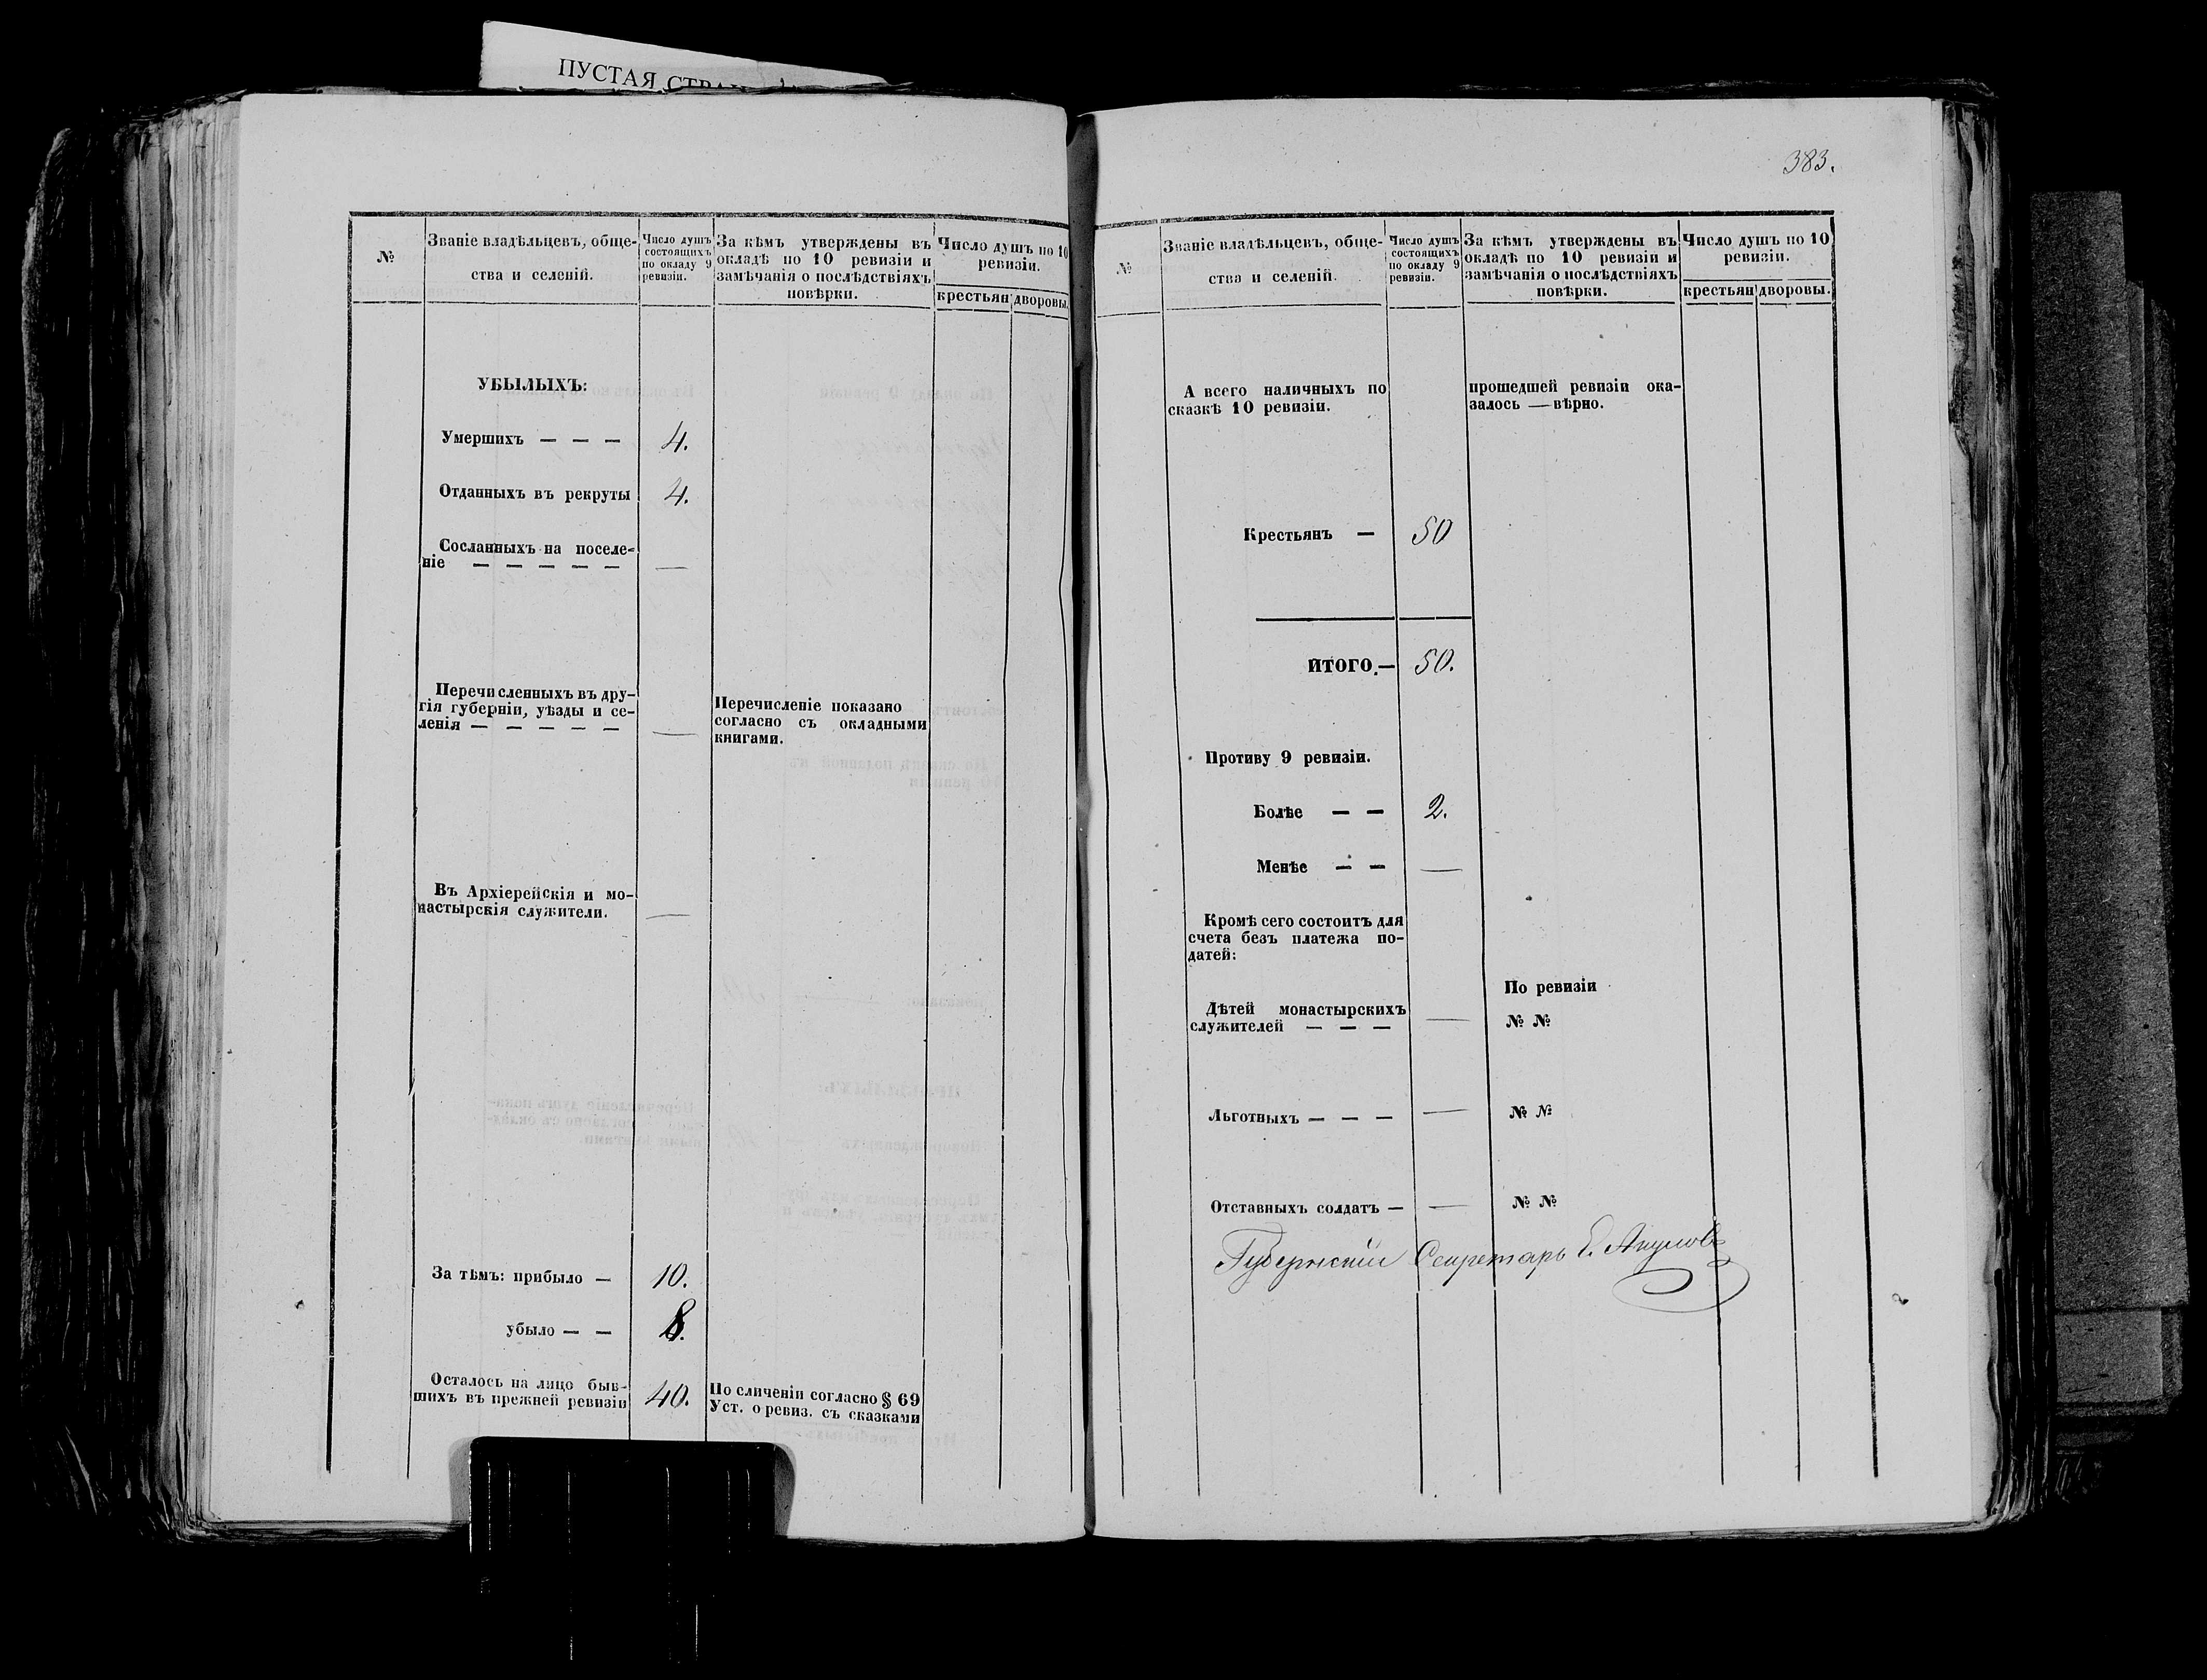 ПУСТАЯ СТРАН
№
Званіе владѣльцевъ, обще-
ства и селеній.
Число душъ
состоящихъ
по окладу 9
ревизіи.
За кѣмъ утверждены въ
окладѣ по 10 ревизіи и
замѣчанія о послѣдствіяхъ
повѣрки.
Число душъ по 10
ревизіи.
крестьян дворовы.
УБЫЛЫХЪ:
Умершихъ — — — 4.
Отданныхъ въ рекруты 4.
Сосланныхъ на поселе-
ніе — — — — — —
Перечисленныхъ въ дру-
гія губерніи, уѣзды и се-
ленія — — — — — —
Перечисленіе показано
согласно съ окладными
книгами.
Въ Архіерейскія и мо-
настырскія служители. —
За тѣмъ: прибыло — 10.
убыло — — 8.
Осталось на лицо быв-
шихъ въ прежней ревизіи 40.
По сличеніи согласно § 69
Уст. о ревиз. съ сказками
383.
№
Званіе владѣльцевъ, обще-
ства и селеній.
Число душъ
состоящихъ
по окладу 9
ревизіи.
За кѣмъ утверждены въ
окладѣ по 10 ревизіи и
замѣчанія о послѣдствіяхъ
повѣрки.
Число душъ по 10
ревизіи.
крестьян дворовы.
А всего наличныхъ по
сказкѣ 10 ревизіи.
прошедшей ревизіи ока-
залось — вѣрно.
Крестьянъ — 50
ИТОГО.— 50.
Противу 9 ревизіи.
Болѣе — — 2.
Менѣе — — —
Кромѣ сего состоитъ для
счета безъ платежа по-
датей:
По ревизіи
Дѣтей монастырскихъ
служителей — — — — № №
Льготныхъ — — — — № №
Отставныхъ солдатъ — — № №
Губернскій Секретарь Е. Акуловъ